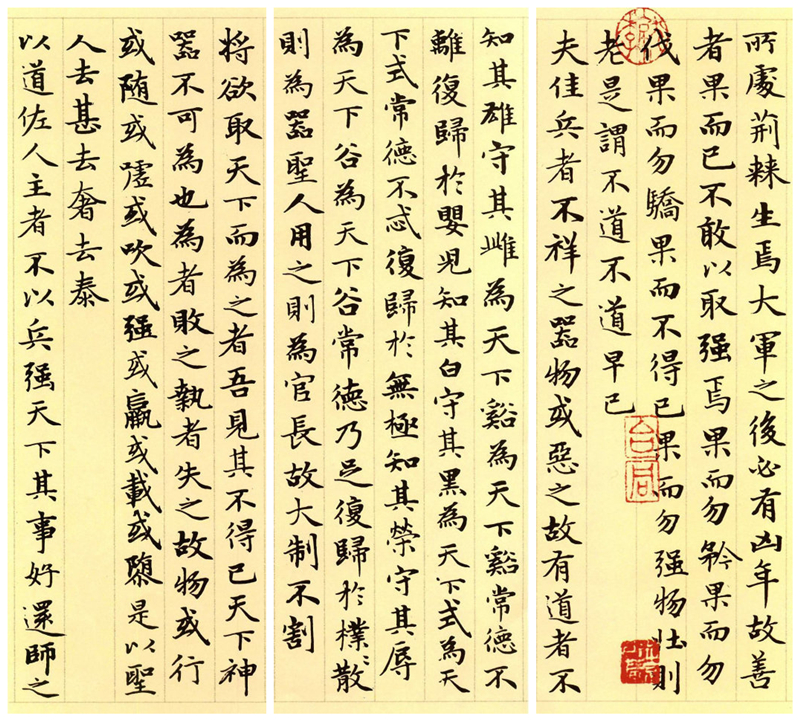 所處荊棘生焉大軍之後必有凶年故善
者果而已不敢以取强焉果而勿矜果而勿
伐果而勿驕果而不得已果而勿强物壮則
老是謂不道不道早已
夫佳兵者不祥之器物或惡之故有道者不
知其雄守其雌為天下谿為天下谿常德不
離復歸於嬰児知其白守其黑為天下式為天
下式常德不忒復歸於無極知其榮守其辱
為天下谷為天下谷常德乃足復歸於樸〻散
則為器聖人用之則為官長故大制不割
将欲取天下而為之者吾見其不得已天下神
器不可為也為者敗之執者失之故物或行
或随或噓或吹或强或羸或載或隳是以聖
人去甚去奢去泰
以道佐人主者不以兵强天下其事好還師之